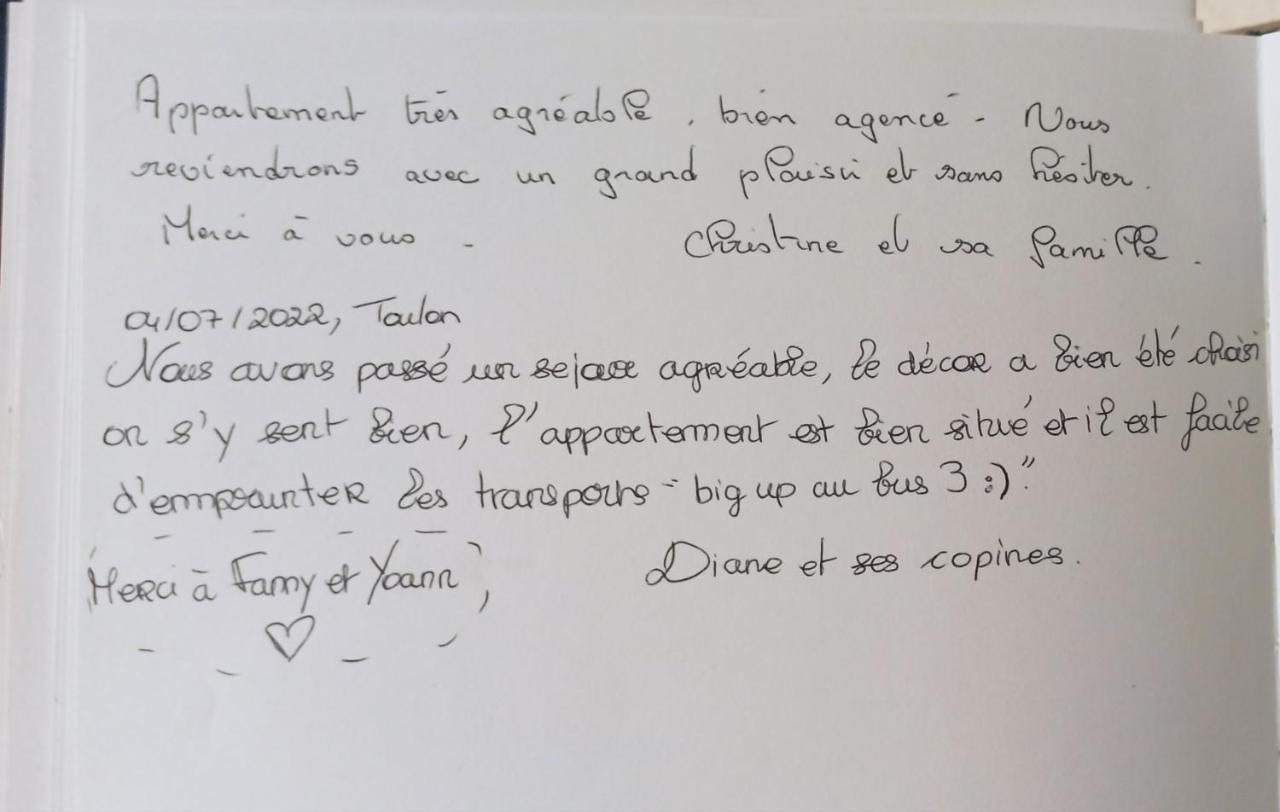 Appartement très agréable, bien agencé - Nous
reviendrons avec un grand plaisir et sans hésiter.
Merci à vous -
Christine et sa famille.
04/07/2022, Toulon
Nous avons passé un sejour agréable, le décor a bien été choisi
on s'y sent bien, l'appartement est bien situé et il est facile
d'emprunter les transports - big up au bus 3 :)"
Merci à Fanny et Yoann
♡
Diane et ses copines.